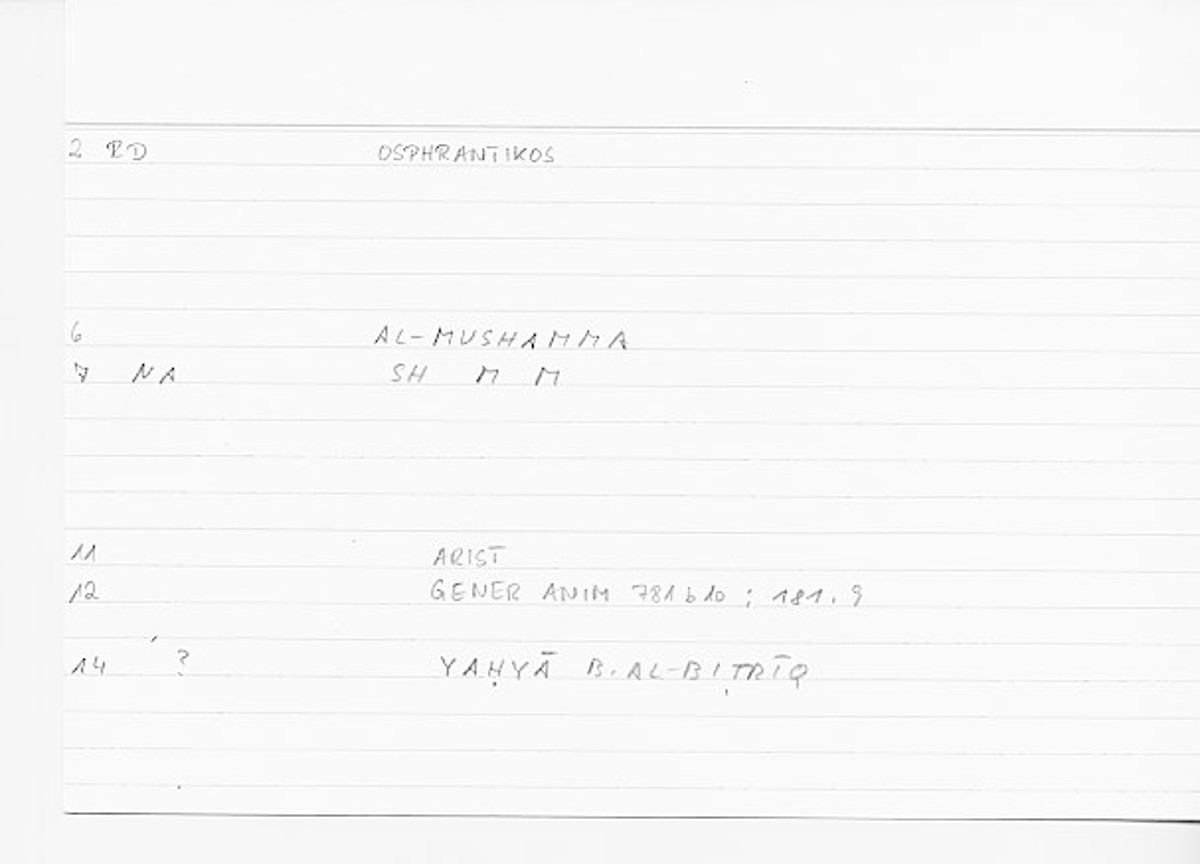 2 RD OSPHRANTIKOS
6 AL-MUSHAMMA
7 NA SH M M
11 ARIST
12 GENER ANIM 781 b 10 ; 181. 9
14 ? YAḤYĀ B. AL-BIṬRĪQ